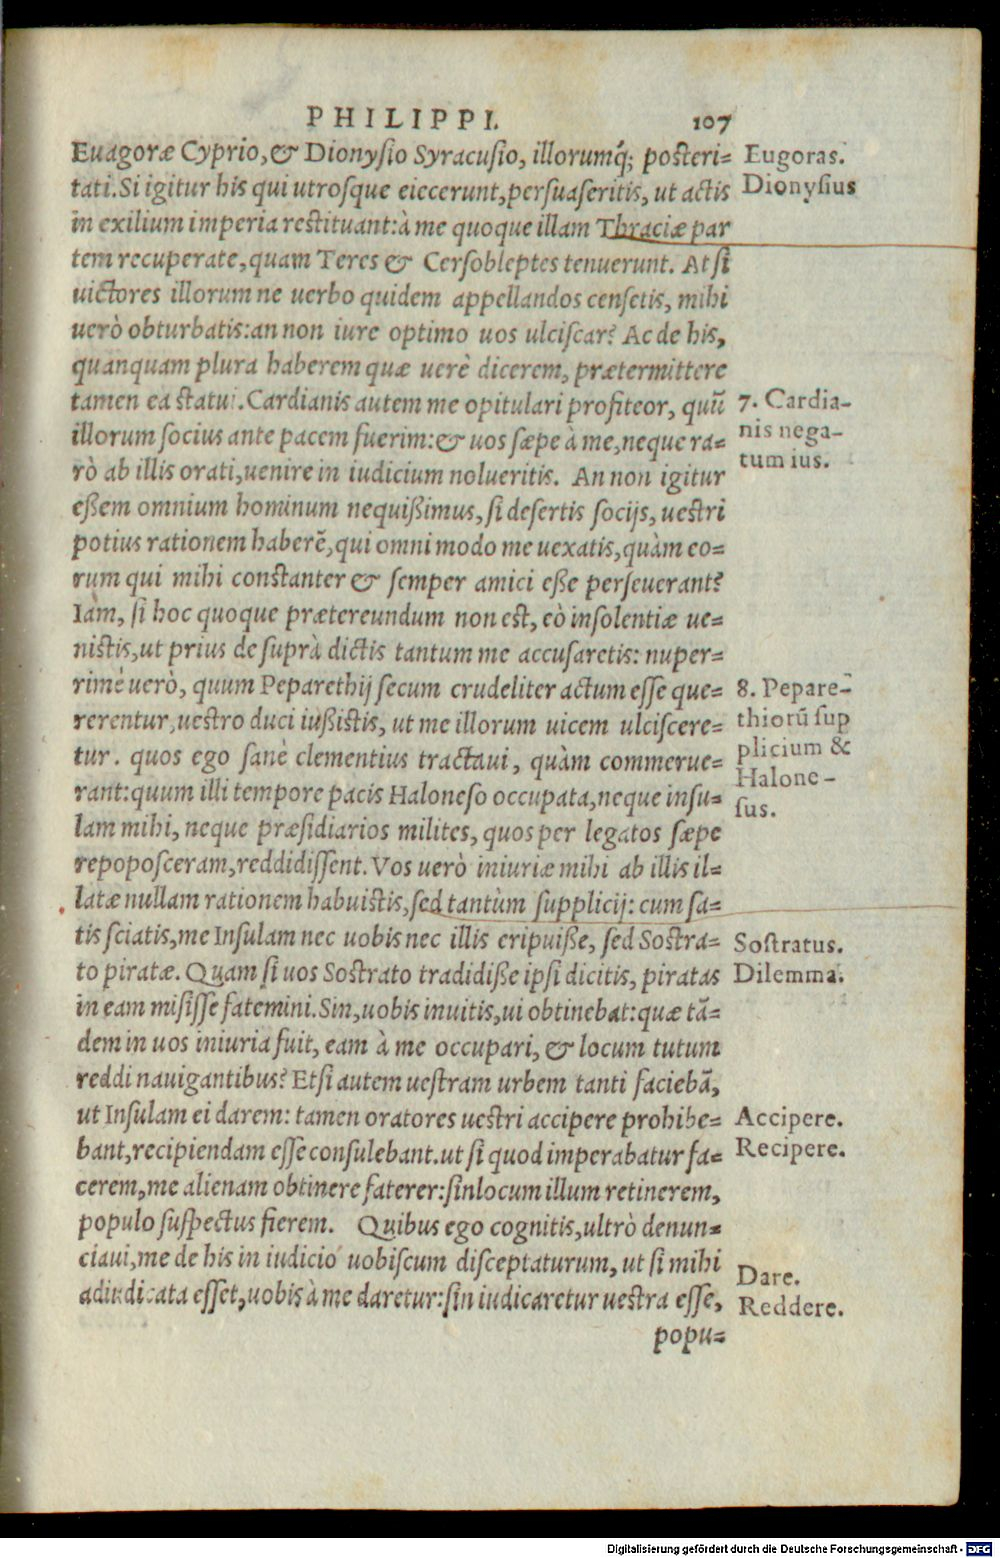 PHILIPPI. 107
Euagoræ Cyprio, & Dionysio Syracusio, illorumq́; posteri=
tati. Si igitur his qui utrosque eiecerunt, persuaseritis, ut actis
in exilium imperia restituant: à me quoque illam Thraciæ par
tem recuperate, quam Teres & Cersobleptes tenuerunt. At si
uictores illorum ne uerbo quidem appellandos censetis, mihi
uerò obturbatis: an non iure optimo uos ulciscar? Ac de his,
quanquam plura haberem quæ uerè dicerem, prætermittere
tamen ea statui. Cardianis autem me opitulari profiteor, quū
illorum socius ante pacem fuerim: & uos sæpe à me, neque ra=
rò ab illis orati, uenire in iudicium nolueritis. An non igitur
eßem omnium hominum nequißimus, si desertis socijs, uestri
potius rationem haberē, qui omni modo me uexatis, quàm eo=
rum qui mihi constanter & semper amici eße perseuerant?
Iàm, si hoc quoque prætereundum non est, eò insolentiæ ue=
nistis, ut prius de suprà dictis tantum me accusaretis: nuper=
rimè uerò, quum Peparethij secum crudeliter actum esse que=
rerentur, uestro duci iußistis, ut me illorum uicem ulciscere=
tur. quos ego sanè clementius tractaui, quàm commerue=
rant: quum illi tempore pacis Haloneso occupata, neque insu=
lam mihi, neque præsidiarios milites, quos per legatos sæpe
repoposceram, reddidissent. Vos uerò iniuriæ mihi ab illis il=
latæ nullam rationem habuistis, sed tantùm supplicij: cum sa=
tis sciatis, me Insulam nec uobis nec illis eripuiße, sed Sostra=
to piratæ. Quam si uos Sostrato tradidiße ipsi dicitis, piratas
in eam misisse fatemini. Sin, uobis inuitis, ui obtinebat: quæ tā=
dem in uos iniuria fuit, eam à me occupari, & locum tutum
reddi nauigantibus? Etsi autem uestram urbem tanti faciebā,
ut Insulam ei darem: tamen oratores uestri accipere prohibe=
bant, recipiendam esse consulebant. ut si quod imperabatur fa=
cerem, me alienam obtinere faterer: sin locum illum retinerem,
populo suspectus fierem. Quibus ego cognitis, ultrò denun=
ciaui, me de his in iudicio uobiscum disceptaturum, ut si mihi
adiudicata esset, uobis à me daretur: sin iudicaretur uestra esse,
popu=
Eugoras.
Dionysius
7. Cardia-
nis nega-
tum ius.
8. Pepare-
thiorū sup
plicium &
Halone-
sus.
Sostratus.
Dilemma.
Accipere.
Recipere.
Dare.
Reddere.
Digitalisierung gefördert durch die Deutsche Forschungsgemeinschaft - DFG